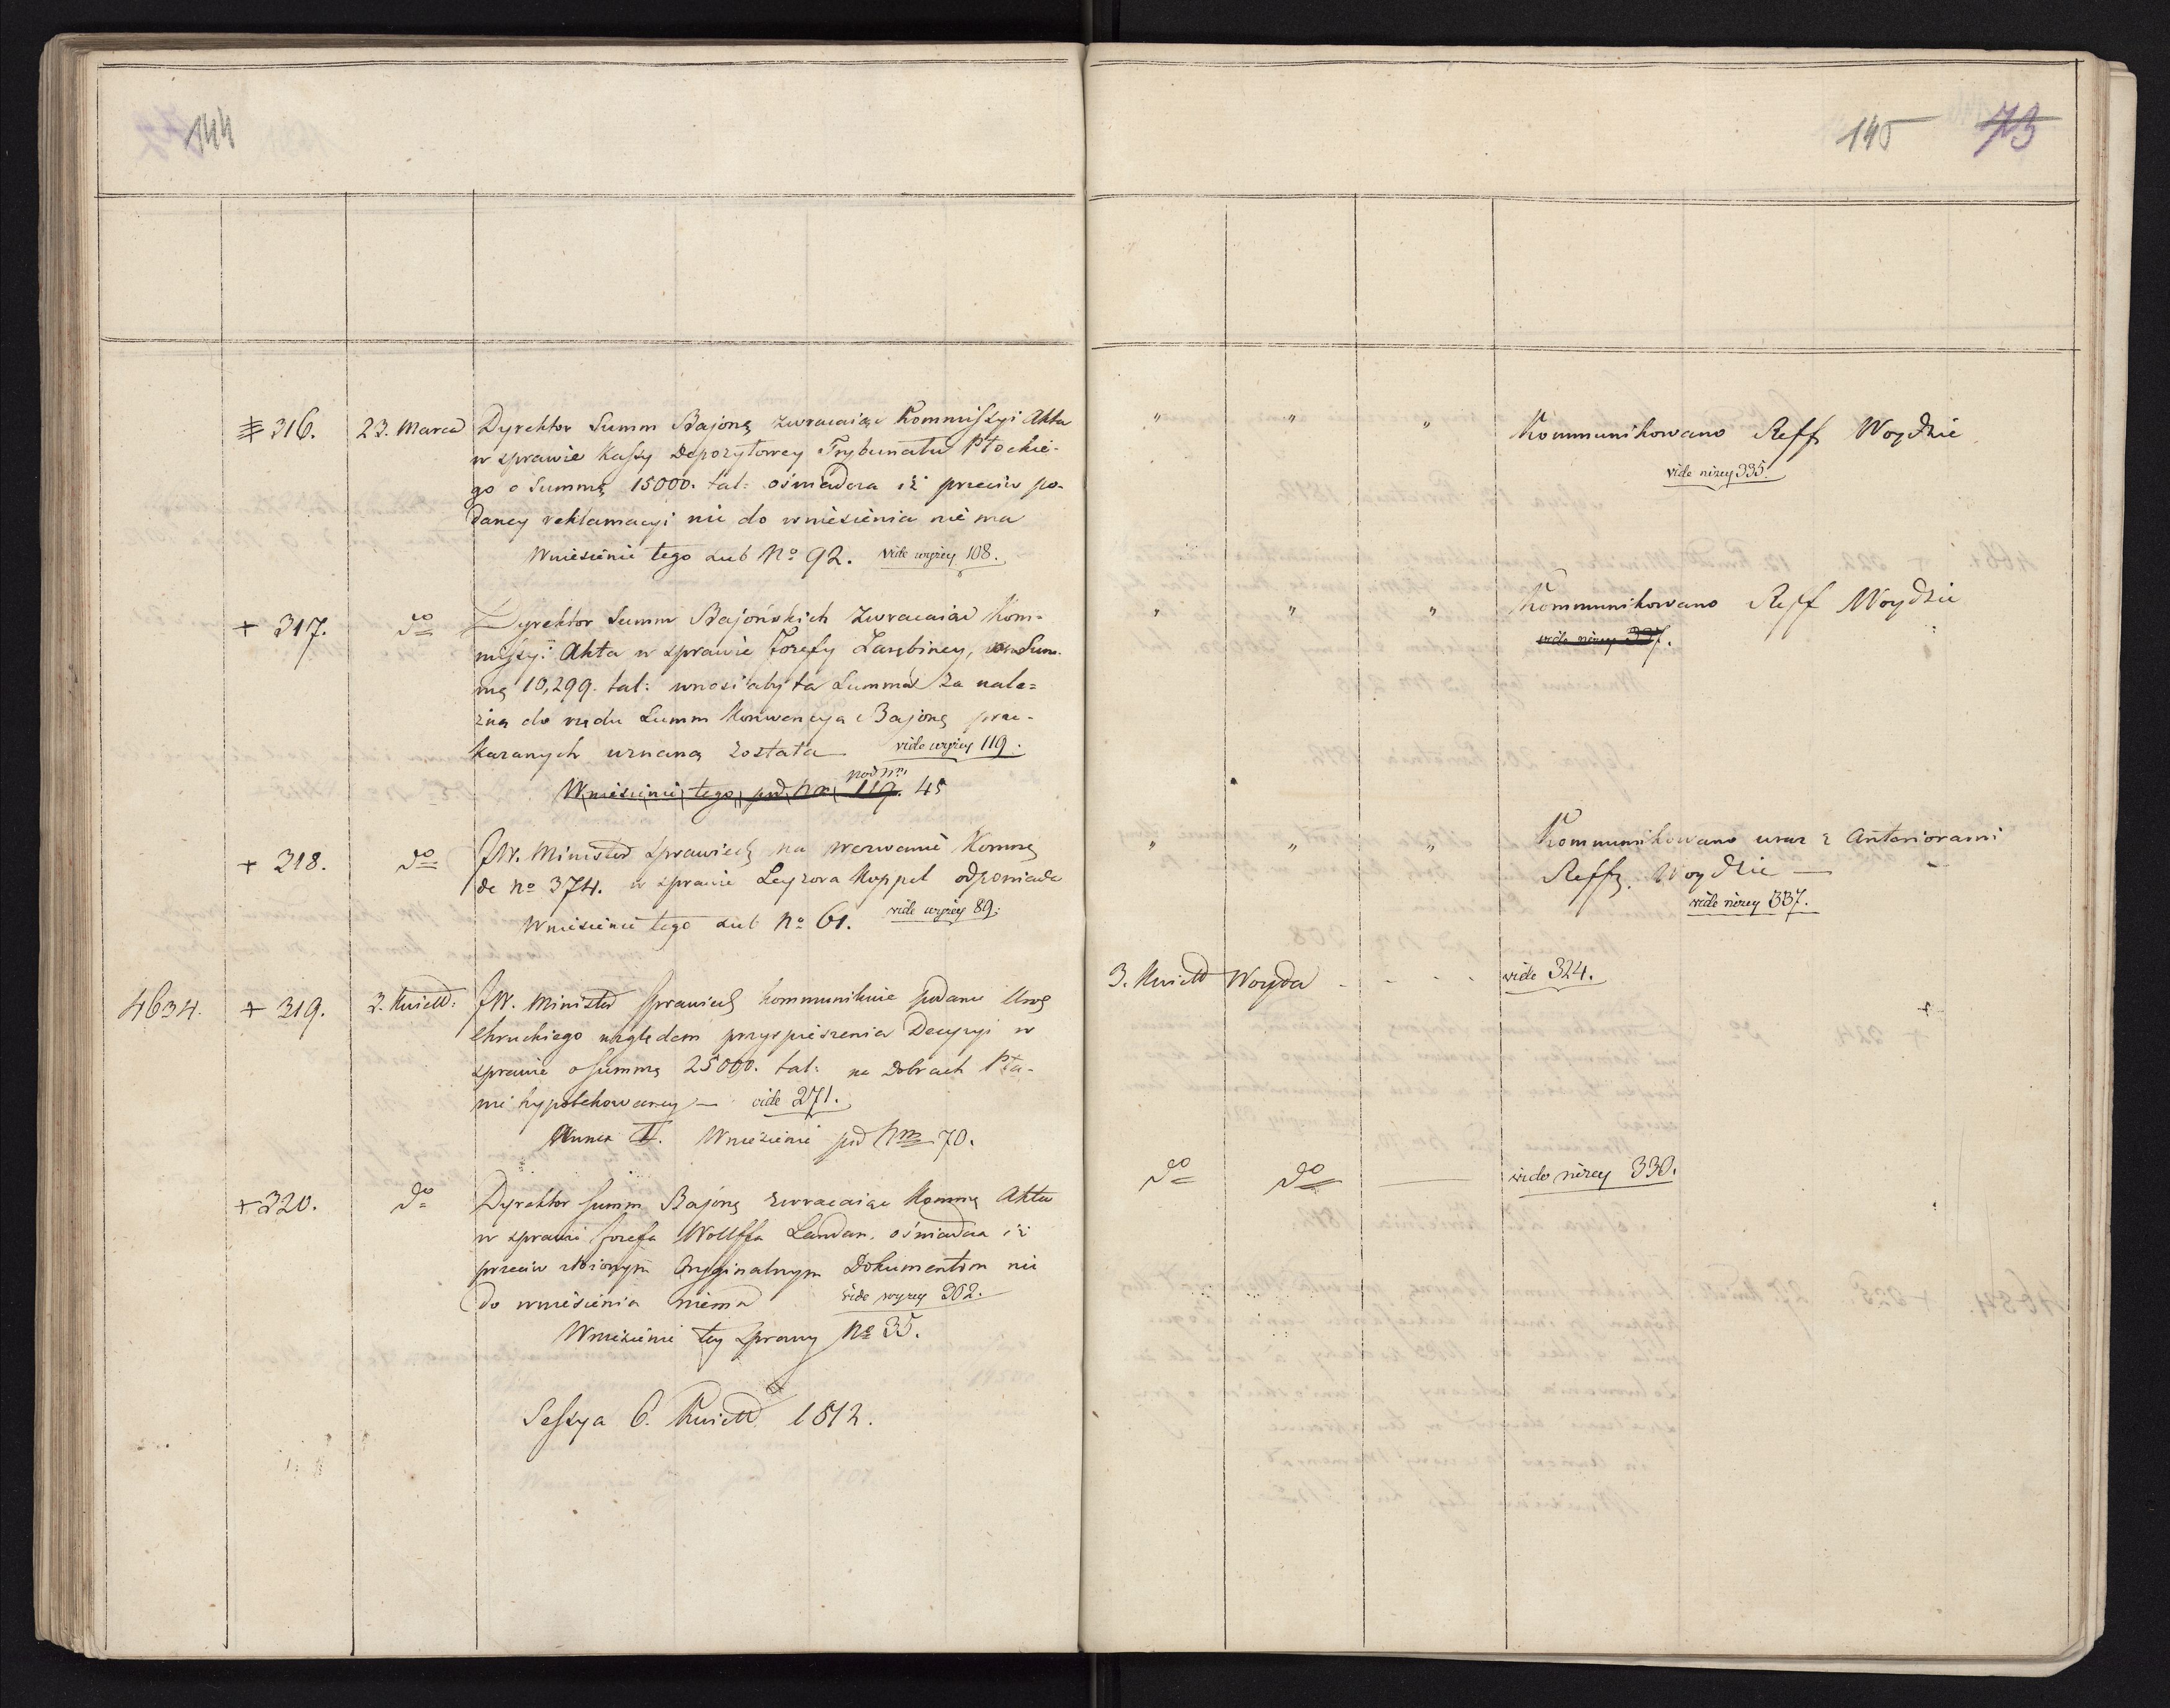 144
316. 23. Marca Dyrektor Summ Bajoną zwracaiąc Kommissyi Akta
w sprawie Kassy Depozytowey Trybunału Płockie-
go o Summę 15000. tal: oświadcza iż przeciw po-
daney reklamacyi nic do wniesienia nie ma
Wniesienie tego sub No 92. vide wyżey 108.
+ 317. do Dyrektor Summ Bajońskich zwracaiąc Kom-
missyi Akta w sprawie Józefy Zarębiney, Sum-
mę 10,299. tal: wnosi aby ta Summa za nale-
żną do rzędu Summ Konwencyą Bajoną prze-
kazanych uznaną została vide wyżey 119.
Wniesienie tego pod No 119. pod Nr 45
+ 318. do JW. Minister Sprawiedl na wezwanie Kommę
de No 374. w sprawie Leyzora Koppel odpowiada
Wniesienie tego sub No 61. vide wyżey 89.
4634. + 319. 3. Kwiett: JW. Minister Sprawiedl kommunikuie podanie Urog
względem przyspieszenia Decyzyi w
sprawie o Summę 25000. tal: na Dobrach Pła-
nie hypotekowaney — vide 271.
Wniesienie pod Nro 70.
+ 320. do Dyrektor Summ Bajoną zwracaiąc Kommę Akta
w sprawie Jozefa Wollffa Landau, oświadcza iż
przeciw złożonym Oryginalnym Dokumentom nic
do wniesienia niema vide wyżey 302.
Wniesienie tey sprawy No 35.
Sessya 6. Kwiett 1812.
145 73
" " " Kommunikowano Reff Woydzie
vide niżey 335.
" " " Kommunikowano Reff Woydzie
vide niżey 337.
" " " Kommunikowano wraz z Anteriorami
Reff. Woydzie —
vide niżey 337.
3. Kwiett Woyda - - - vide 324.
do do — vide niżey 330.